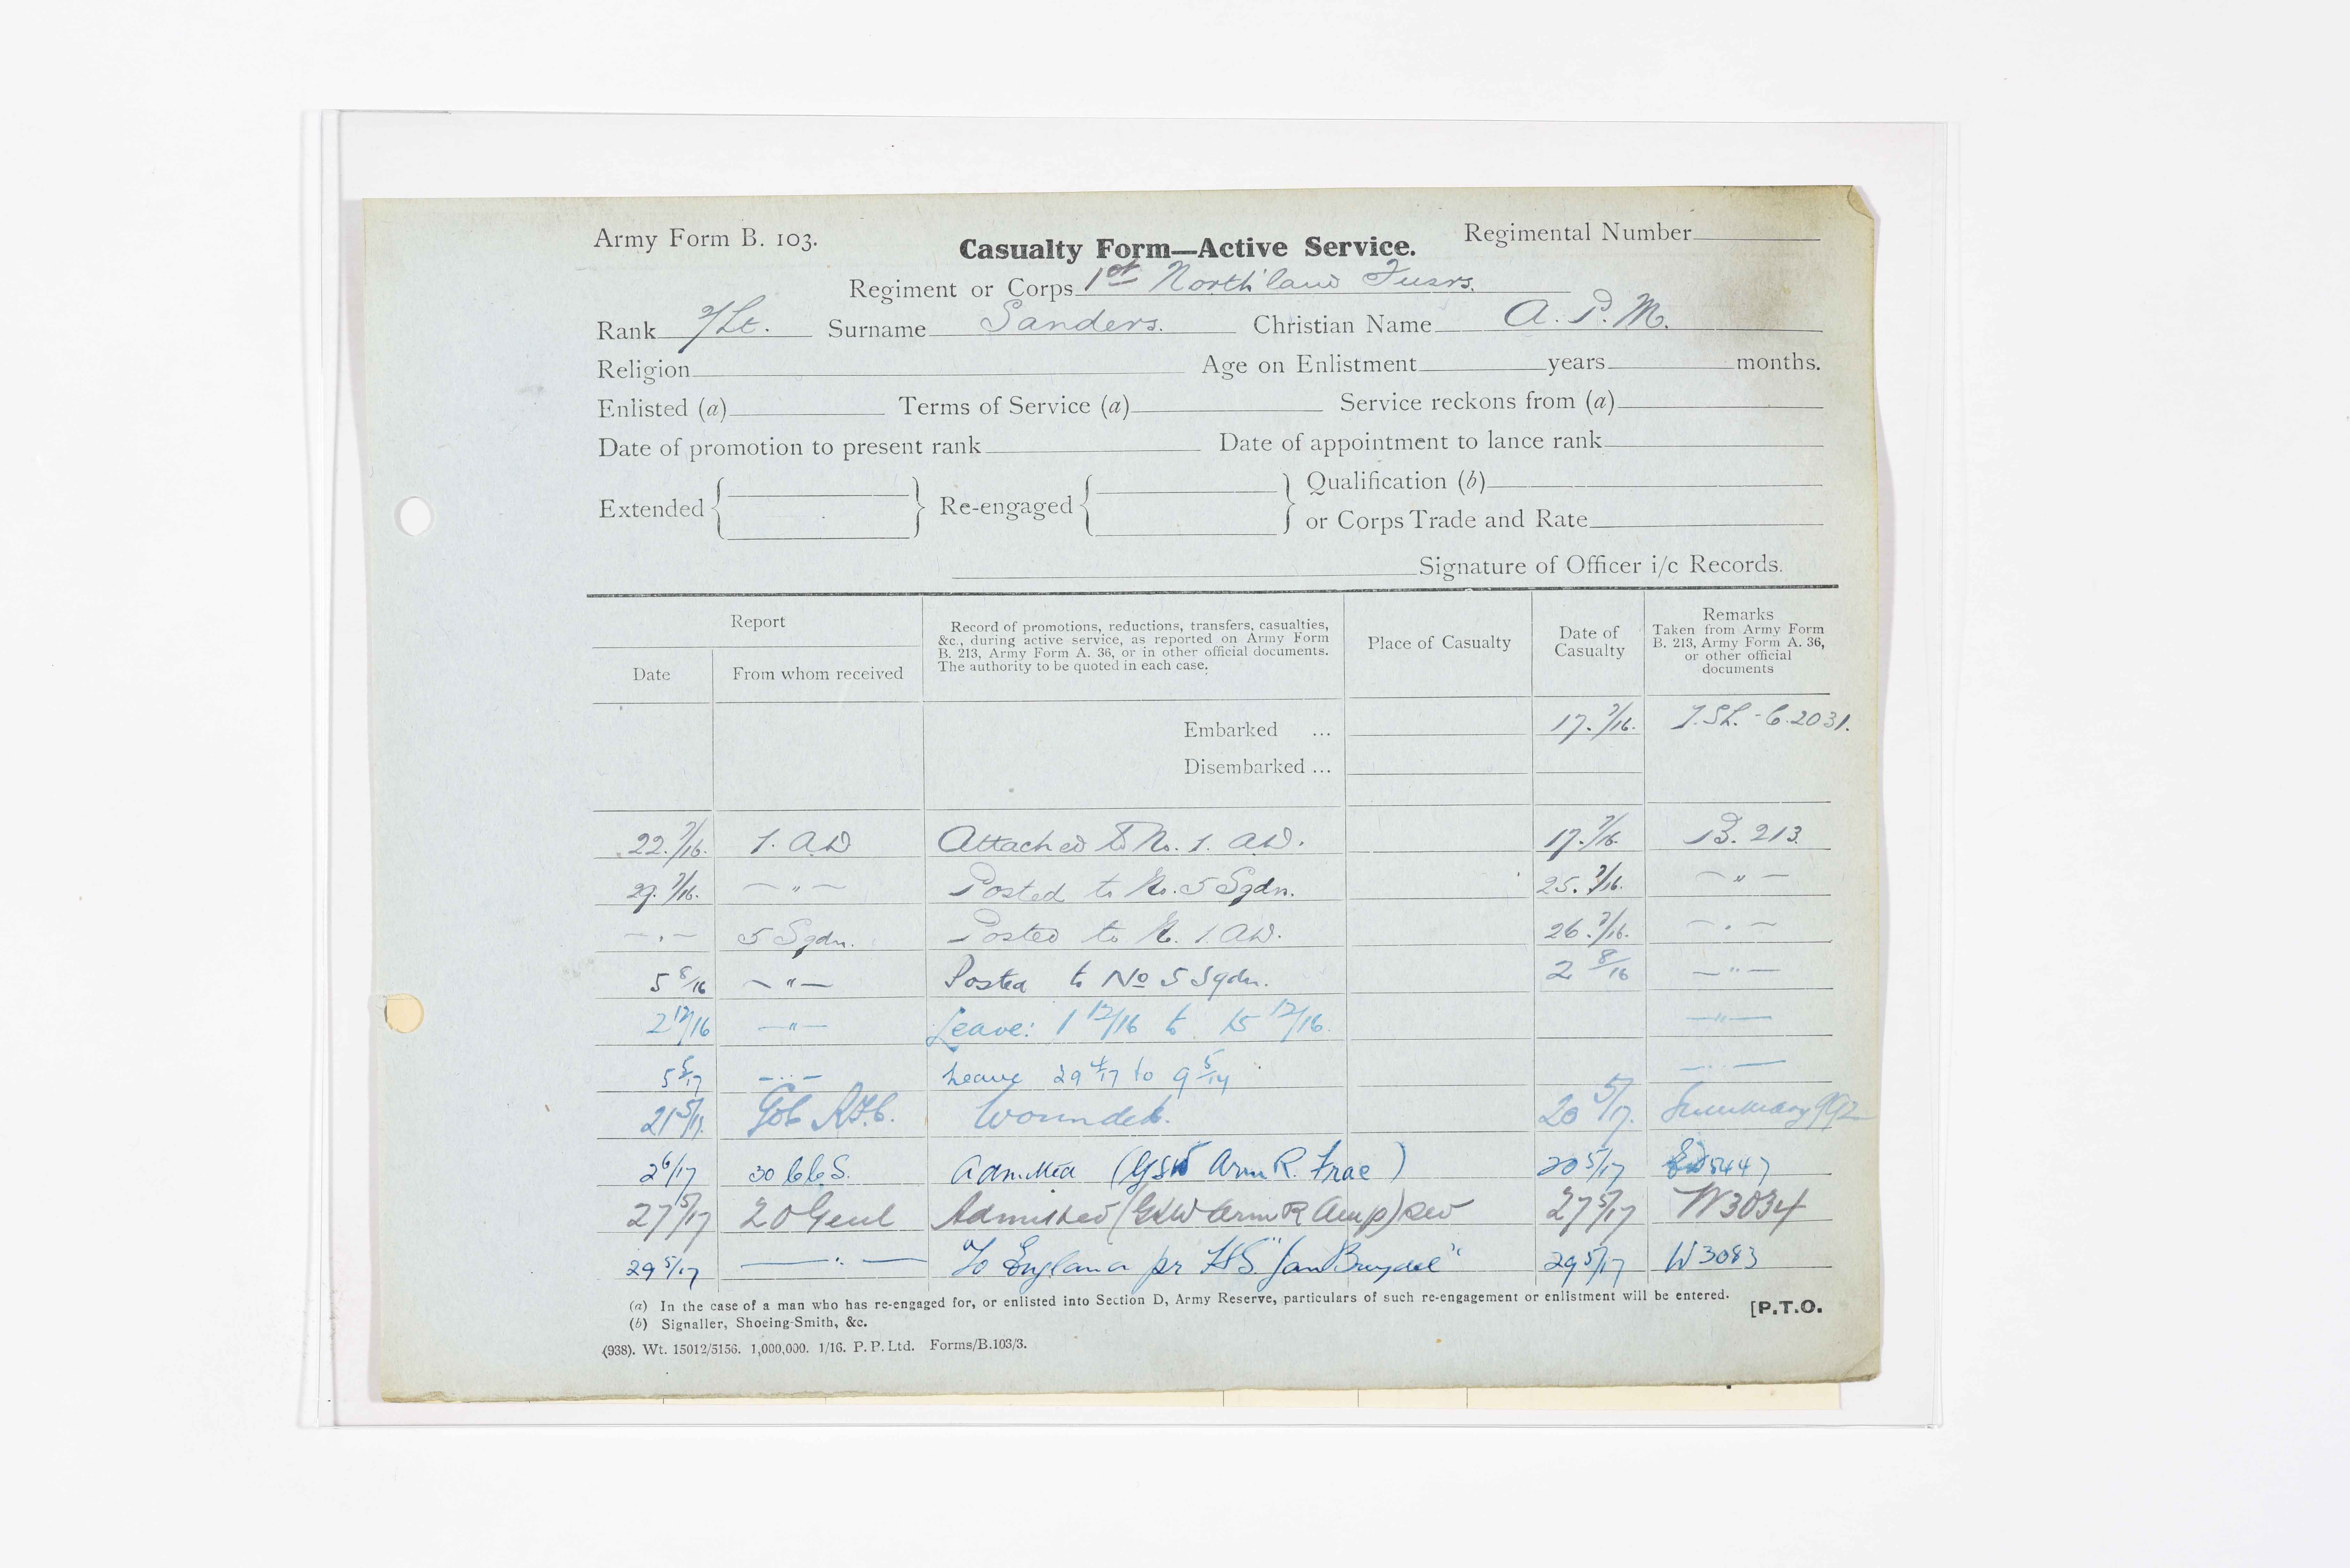 Army Form B. 103.
Casualty Form—Active Service.
Regimental Number
Regiment or Corps 1st North'land Fusrs.
Rank 2/Lt. Surname Sanders. Christian Name A. P. M.
Religion Age on Enlistment years months.
Enlisted (a) Terms of Service (a) Service reckons from (a)
Date of promotion to present rank Date of appointment to lance rank
Extended { } Re-engaged { } Qualification (b)
or Corps Trade and Rate
Signature of Officer i/c Records.
Report
Date
From whom received
Record of promotions, reductions, transfers, casualties,
&c., during active service, as reported on Army Form
B. 213, Army Form A. 36, or in other official documents.
The authority to be quoted in each case.
Place of Casualty
Date of
Casualty
Remarks
Taken from Army Form
B. 213, Army Form A. 36,
or other official
documents
Embarked ... 17.7/16. 2031.
Disembarked ...
22.7/16. 1. A.D Attached to No. 1. A.D. 17.7/16. B. 213.
29.7/16. — " — Posted to No. 5 Sqdn. 25.7/16. — " —
— " — 5 Sqdn. Posted to No. 1. A.D. 26.7/16. — " —
5 8/16 — " — Posted to No 5 Sqdn. 2 8/16 — " —
2 12/16 — " — Leave: 1 12/16 to 15 12/16. — " —
5 5/17 — " — Leave 29 4/17 to 9 5/17 — " —
21 5/17. GOC RFC. Wounded. 20 5/17. Summary 992
2 6/17 30 CCS. Admitted (GSW Arm R. Frac) 20 5/17 5447
27 5/17 20 Genl Admitted (GSW Arm R Amp) sev 27 5/17 W3034
29 5/17 — " — To England pr HS "Jan Breydel" 29 5/17 W3083
(a) In the case of a man who has re-engaged for, or enlisted into Section D, Army Reserve, particulars of such re-engagement or enlistment will be entered.
(b) Signaller, Shoeing-Smith, &c.
[P.T.O.
(938). Wt. 15012/5156. 1,000,000. 1/16. P. P. Ltd. Forms/B.103/3.